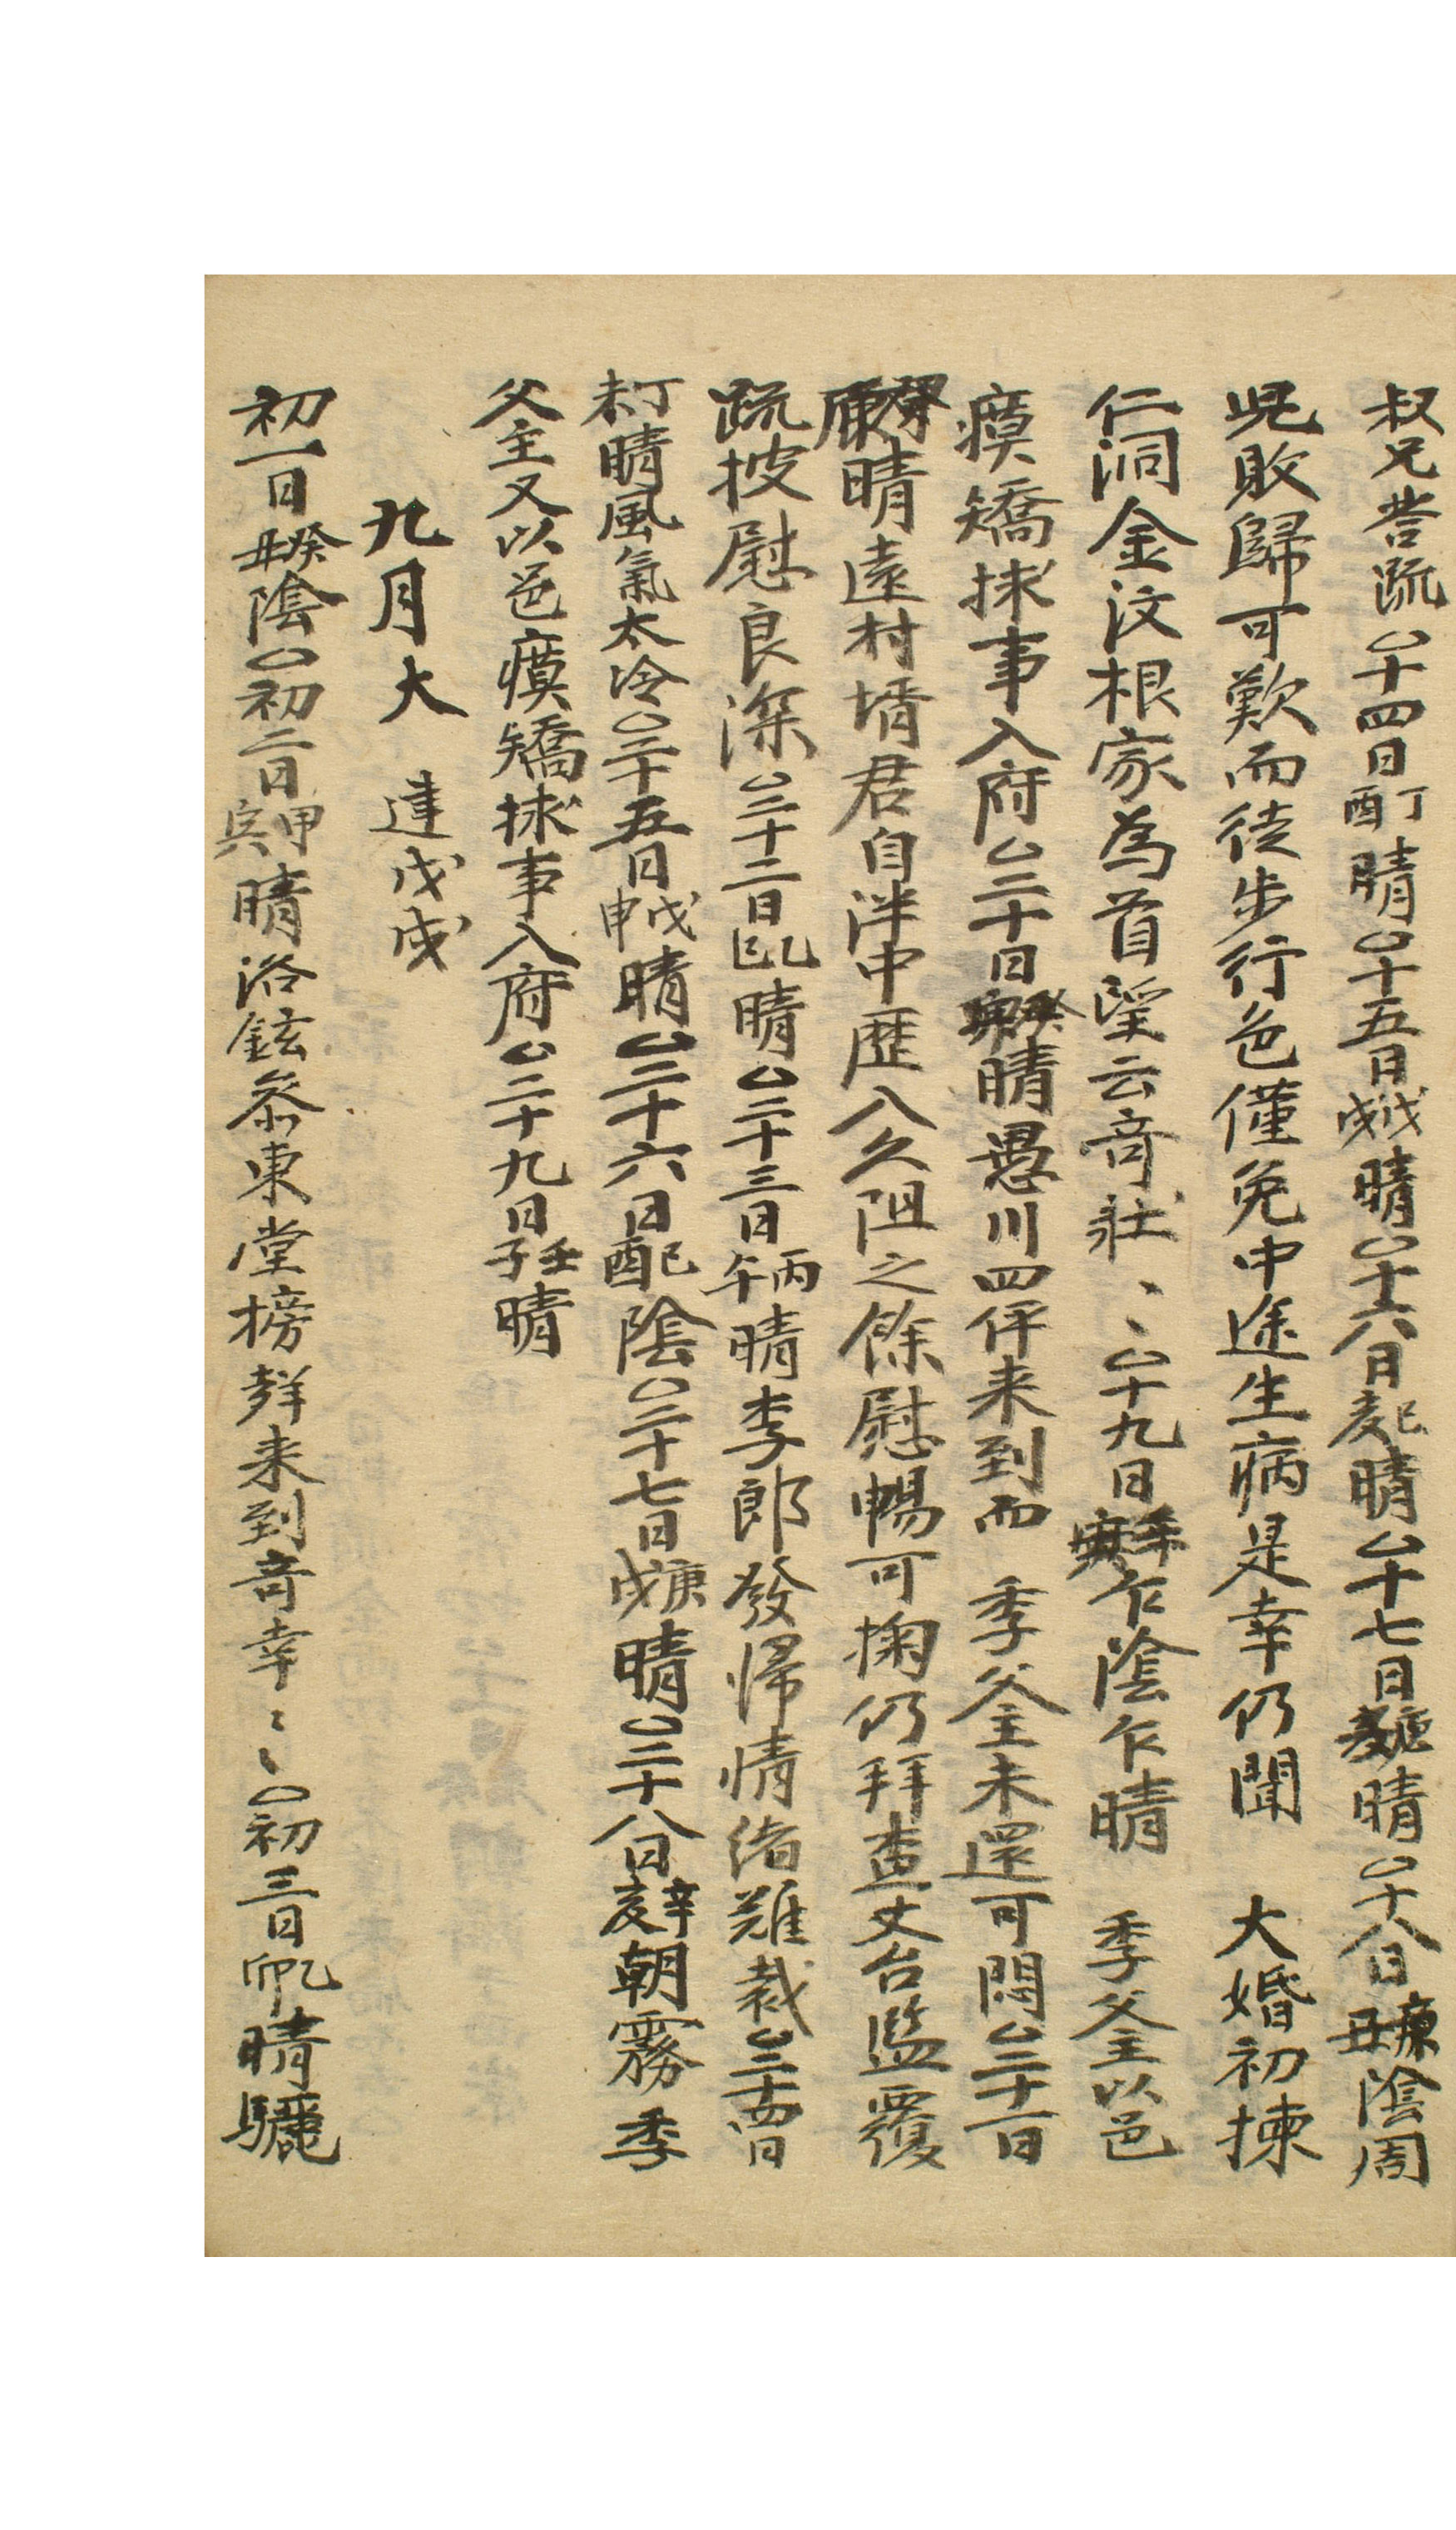 叔兄答疏○十四日丁酉晴○十五日戊戌晴○十六日己亥晴○十七日晴○十八日陰周
兒敗歸可歎而徒步行色僅免中途生病是幸仍聞 大婚初揀
仁洞金汶根家為首望云奇壯〻〻○十九日乍陰乍晴 季父主以邑
瘼矯捄事入府○二十日晴愚川四伻来到而 季父主未還可悶○二十一日
晴遠村壻君自泮中歷入久阻之餘慰暢可掬仍拜査丈台監覆
疏披慰良深○二十二日乙巳晴○二十三日丙午晴李郎發歸情緒難裁○二十四日
丁未晴風氣太冷○二十五日戊申晴○二十六日己酉陰○二十七日庚戌晴○二十八日辛亥朝霧 季
父主又以邑瘼矯捄事入府○二十九日壬子晴
九月大 建戊戌
初一日癸丑陰○初二日甲寅晴浴鉉參東堂榜聲来到奇幸〻〻○初三日乙卯晴驪